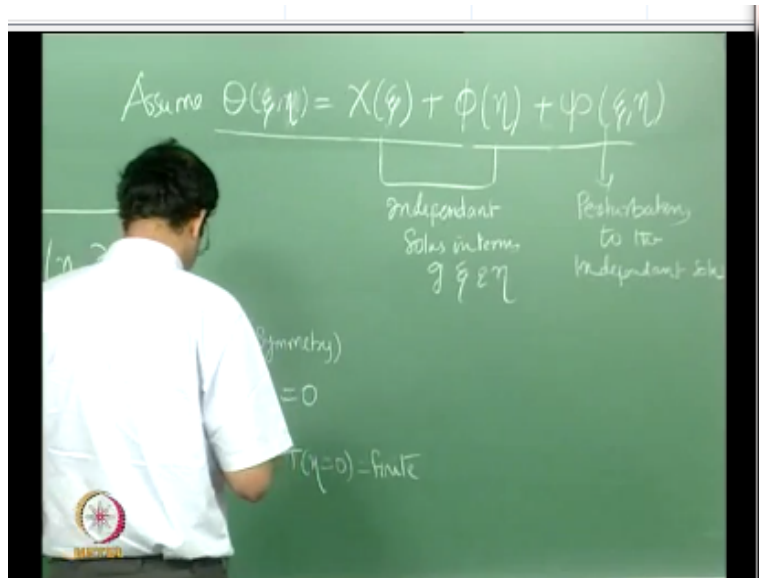 Assume Θ(ξ,η) = X(ξ) + ϕ(η) + ψ(ξ,η)
Independant
Solns in terms
of ξ & η
Perturbation
to the
Independant Soln
(η
Symmetry)
= 0
T(η=0) = finite
NPTEL